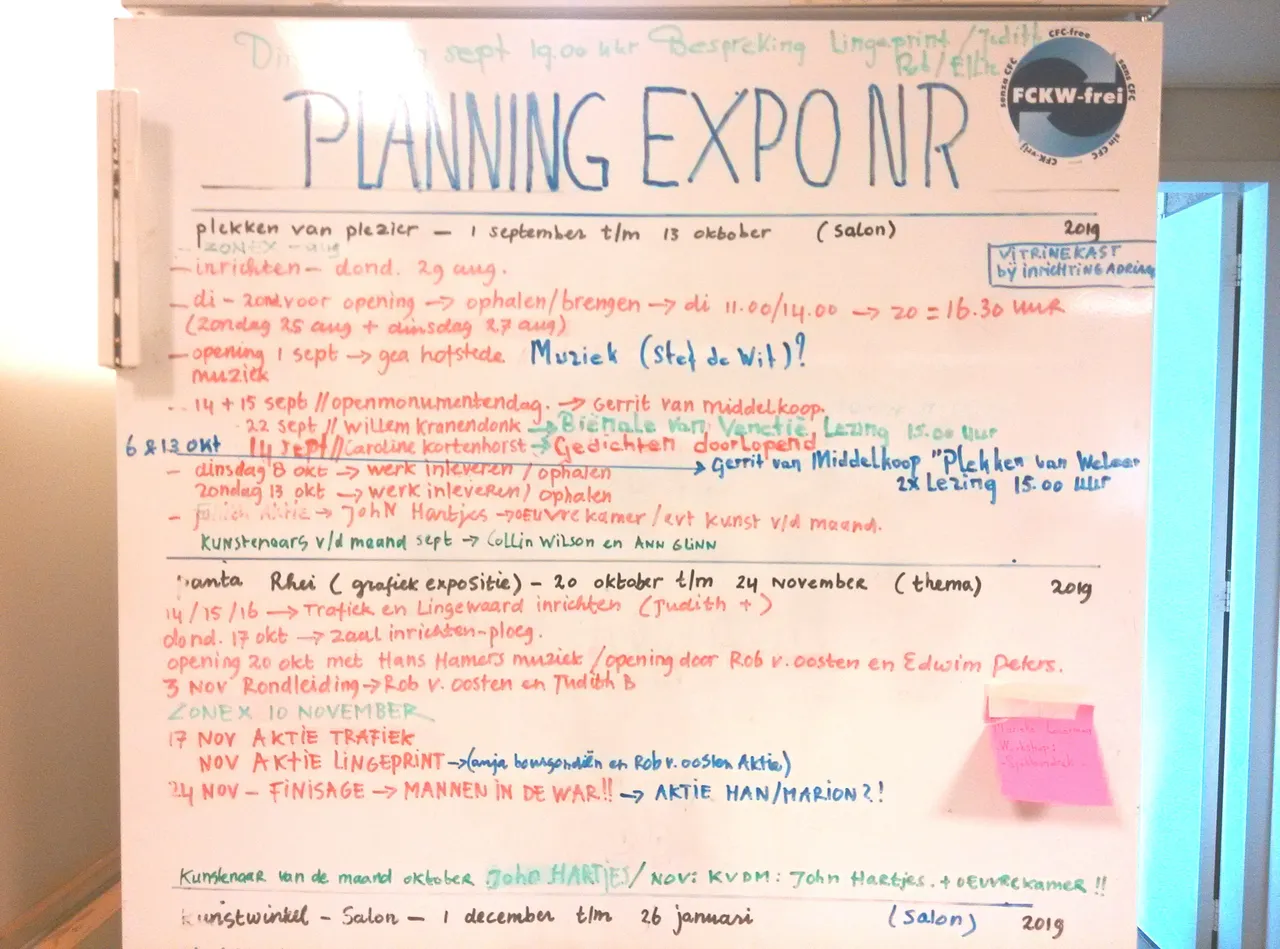 sept 19.00 uur Bespreking Lingeprint / Judith
Rob / Ellie
CFC-free
sans CFC
senza CFC
FCKW-frei
sin CFC
CFK-vrij
PLANNING EXPO NR
plekken van plezier – 1 september t/m 13 oktober (Salon) 2019
ZONEX – aug
VITRINEKAST
bij inrichting Adriaan
– inrichten – dond. 29 aug.
– di – zond voor opening → ophalen/brengen → di 11.00/14.00 → zo = 16.30 uur
(zondag 25 aug + dinsdag 27 aug)
– opening 1 sept → gea hofstede Muziek (Stef de Wit)?
muziek
14 + 15 sept // openmonumentendag. → Gerrit van Middelkoop.
22 sept // Willem Kranendonk → Biënale van Venetië, Lezing 15.00 uur
6 & 13 okt 14 sept // Caroline Kortenhorst → Gedichten doorlopend
– dinsdag 8 okt → werk inleveren / ophalen → Gerrit van Middelkoop "Plekken van Weleer
zondag 13 okt → werk inleveren / ophalen 2x Lezing 15.00 uur
– Aktie → John Hartjes → OEUVREkamer / evt kunst v/d maand.
Kunstenaars v/d maand sept → Collin Wilson en Ann Glinn
anta Rhei (grafiek expositie) – 20 oktober t/m 24 november (thema) 2019
14 / 15 / 16 → Trafiek en Lingewaard inrichten (Judith +)
dond. 17 okt → zaal inrichten-ploeg.
opening 20 okt met Hans Hamers muziek / opening door Rob v. oosten en Edwim Peters.
3 Nov Rondleiding → Rob v. oosten en Judith B
ZONEX 10 NOVEMBER
17 NOV AKTIE TRAFIEK
NOV AKTIE LINGEPRINT → (anja bourgondiën en Rob v. oosten Aktie)
24 NOV – FINISAGE → MANNEN IN DE WAR!! → AKTIE HAN/MARION?!
Workshops
Kunstenaar van de maand oktober John HARTJES / NOV: KVDM: John Hartjes. + OEUVREkamer !!
Kunstwinkel – Salon – 1 december t/m 26 januari (Salon) 2019